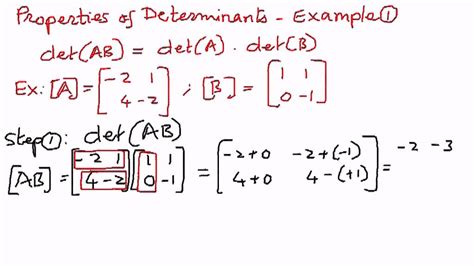 Properties of Determinants - Example ①
det(AB) = det(A) . det(B)
Ex: [A] = [-2 1; 4 -2] ; [B] = [1 1; 0 -1]
Step ①: det(AB)
[AB] = [-2 1; 4 -2] [1 1; 0 -1] = [-2+0 -2+(-1); 4+0 4-(+1)] = -2 -3